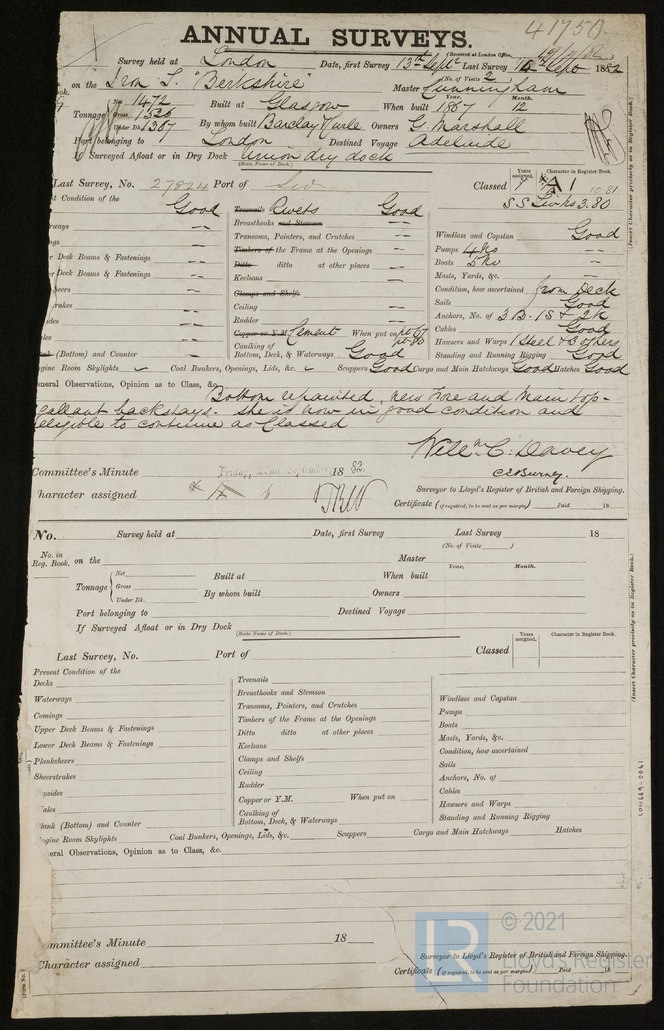 41750
ANNUAL SURVEYS.
(Received at London Office,
Survey held at London Date, first Survey 13th Sept Last Survey Sept 1882
(No. of Visits 2)
on the Iron S. "Berkshire" Master Cunningham
Year. Month.
Tonnage Net 1472 Built at Glasgow When built 1867 12
Gross 1520
Under Dk. 1387 By whom built Barclay Curle Owners G Marshall
Port belonging to London Destined Voyage Adelaide
Surveyed Afloat or in Dry Dock Union dry dock
(State Name of Dock.)
Years assigned. Character in Register Book.
Last Survey, No. 27824 Port of Classed 9 A1 10.81
SS 3.80
Condition of the Good
Treenails Rivets Good
Breasthooks and Stemson "
Transoms, Pointers, and Crutches "
Timbers of the Frame at the Openings "
Ditto ditto at other places "
Keelsons "
Clamps and Shelfs
Ceiling "
Rudder "
Copper or Y.M. Cement When put on
Caulking of
Bottom, Deck, & Waterways Good
Deck Beams & Fastenings "
Deck Beams & Fastenings "
(Bottom) and Counter "
Windlass and Capstan Good
Pumps 4 No "
Boats 5 No "
Masts, Yards, &c. "
Condition, how ascertained from Deck
Sails Good
Anchors, No. of 3 B. 1 S & 2 K
Cables Good
Hawsers and Warps 1 Steel & 3 others
Standing and Running Rigging Good
Room Skylights Coal Bunkers, Openings, Lids, &c. Scuppers Good Cargo and Main Hatchways Good Hatches Good
General Observations, Opinion as to Class, &c.
Bottom repainted, new Fore and Main top-
gallant backstays. She is now in good condition and
eligible to continue as Classed
Willm C. Davey
C Burney.
Surveyor to Lloyd's Register of British and Foreign Shipping.
Committee's Minute Friday, 22nd September 1882.
Character assigned
Certificate (if required, to be sent as per margin) Paid 18
(Insert Character precisely as in Register Book.)
No. Survey held at Date, first Survey Last Survey 18
(No. of Visits )
No. in
Reg. Book. on the Master
Year. Month.
Tonnage Net Built at When built
Gross
Under Dk. By whom built Owners
Port belonging to Destined Voyage
If Surveyed Afloat or in Dry Dock
(State Name of Dock.)
Years assigned. Character in Register Book.
Last Survey, No. Port of Classed
Present Condition of the
Decks
Waterways
Comings
Upper Deck Beams & Fastenings
Lower Deck Beams & Fastenings
Planksheers
Sheerstrakes
Plank (Bottom) and Counter
Treenails
Breasthooks and Stemson
Transoms, Pointers, and Crutches
Timbers of the Frame at the Openings
Ditto ditto at other places
Keelsons
Clamps and Shelfs
Ceiling
Rudder
Copper or Y.M. When put on
Caulking of
Bottom, Deck, & Waterways
Windlass and Capstan
Pumps
Boats
Masts, Yards, &c.
Condition, how ascertained
Sails
Anchors, No. of
Cables
Hawsers and Warps
Standing and Running Rigging
Engine Room Skylights Coal Bunkers, Openings, Lids, &c. Scuppers Cargo and Main Hatchways Hatches
General Observations, Opinion as to Class, &c.
(Insert Character precisely as in Register Book.)
LON669-0061
Committee's Minute 18
Character assigned
Surveyor to Lloyd's Register of British and Foreign Shipping.
Certificate (if required, to be sent as per margin) Paid 18
LR
© 2021
Lloyd's Register
Foundation